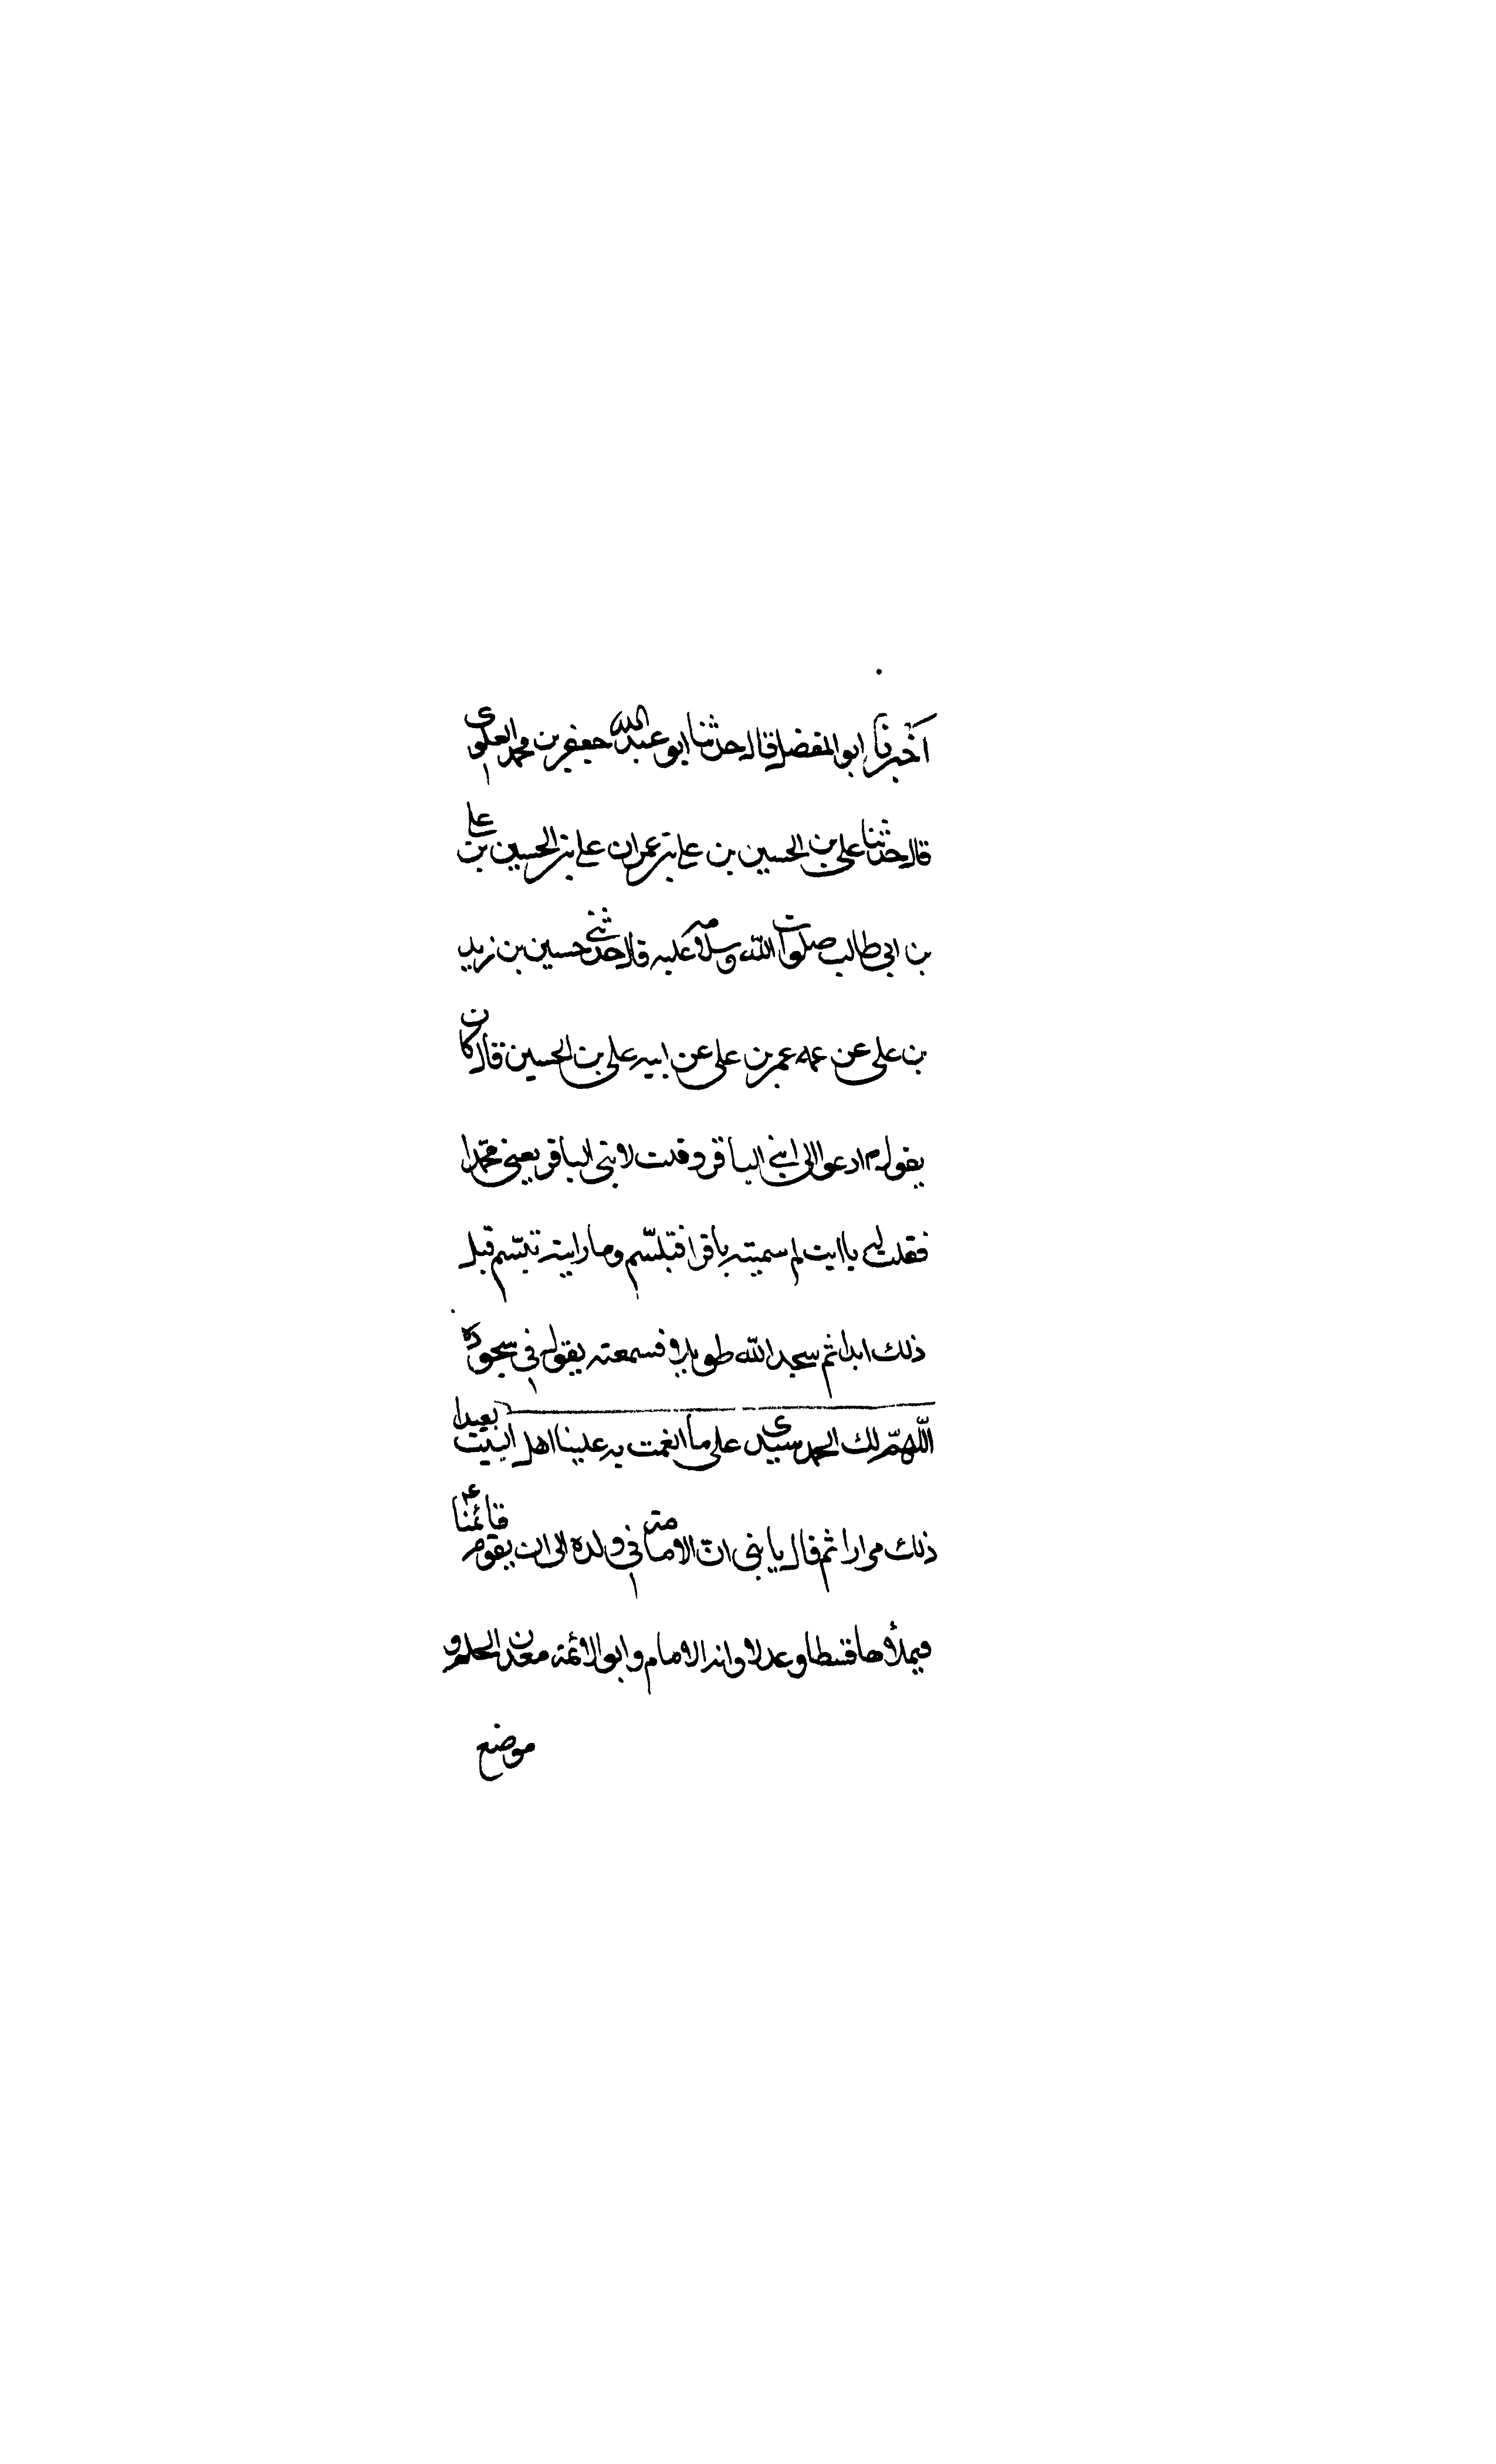 أخبرنا ابو المفضل قال حدثنا ابو عبد الله جعفر بن محمد العلوى
قال حدثنا على بن الحسين بن على بن عمر ان على بن الحسين بن على
بن ابى طالب صلوات الله وسلامه عليه قال حدثنى حسين بن زيد
بن على عن عمه عمر بن على عن ابيه على بن الحسين قال كان
يقول م ادعوا الى ابنى الباقر وقلت لابنى الباقر يعنى محمدا
فقلت له يا ابت لم سميته باقرا فتبسّم وما رايته تبسّم قبل
ذلك ابدا ثم سجد الله طويلا فسمعته يقول فى سجوده
اللّهمّ لك الحمد سيدى على ما انعمت به علينا اهل البيت بعيدا
ذلك مرارا ثم قال يا بنى انّ الامامة فى ولده الى ان يقوم قائمنا ع
فيملأها قسطا وعدلا وانه الامام وابو الائمة معدن الحلم و
موضع